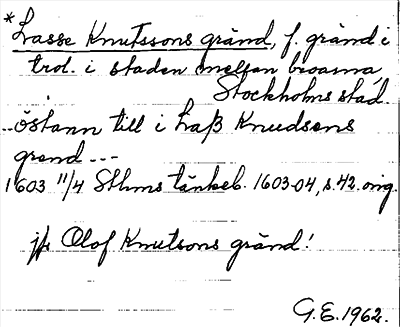 * Lasse Knutssons gränd, f. gränd i
trol. i staden mellan broarna,
Stockholms stad.
..östann till i Laß Knudsens
grend ---
1603 11/4 Sthms tänkeb. 1603-04, s. 42. orig.
jfr Olof Knutsons gränd!
G.E. 1962.